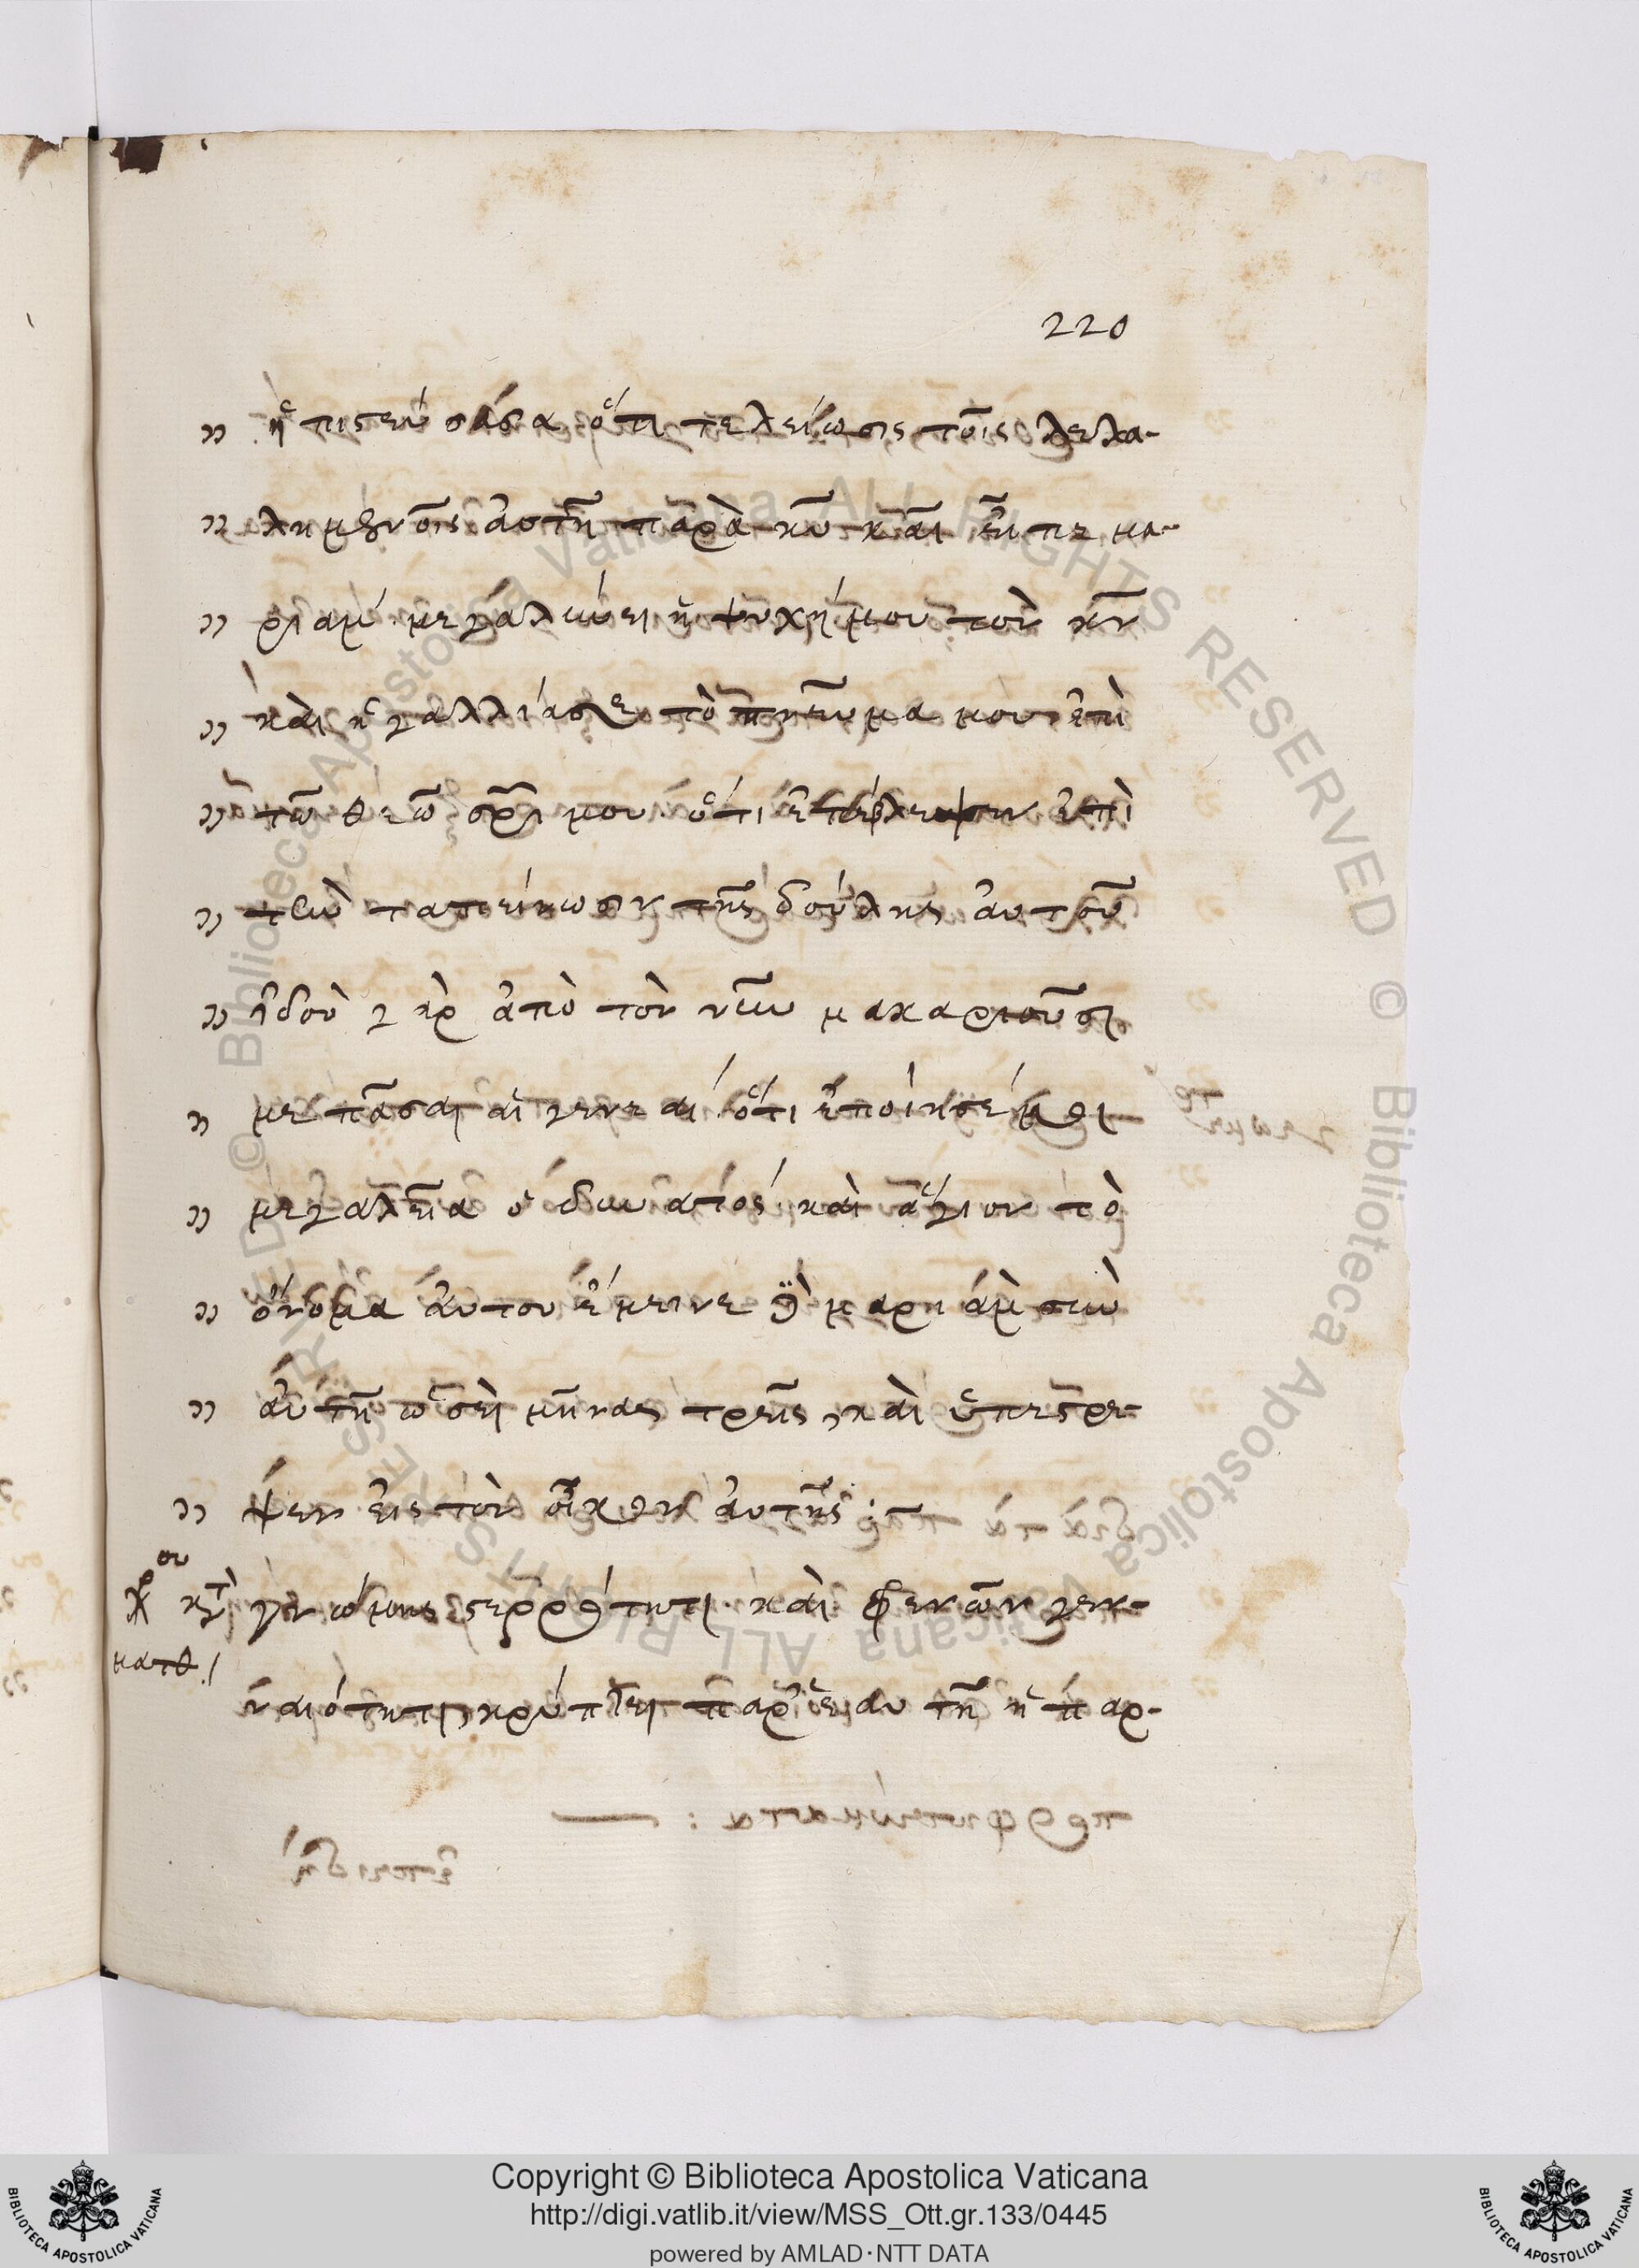 220
ἡ πιστεύσασα ὅτι τελείωσις τοῖς λελα-
λημένοις ἀστῆ παρὰ κῦ καὶ εἶπε μα-
ριαμ́ μεγαλύνει ἡ ψυχή μου τὸν κν̄
καὶ ἠγαλλίασε τὸ πνεῦμα μου ἐπὶ
τῶ θεῶ σρ̄ι μου. ὅτι ἐπέβλεψεν ἐπὶ
τὴν ταπείνωσιν τῆς δούλης αὐτοῦ
ἰδοὺ γὰρ ἀπὸ τὸν νῦν μακαριοῦσι
με πᾶσαι αἱ γενεαί. ὅτι ἐποίησέ μοι
μεγαλεῖα ὁ δυνατός καὶ ἅγιον τὸ
ὄνομα αὐτου ἔμεινε δὲ μαριάμ σὺν
αὐτῆ ὡσεὶ μῆνας τρεῖς, καὶ ὑπεστρε-
ψεν εἰς τὸν οἶκον αὐτῆς:
γνώμης στερρότητι καὶ φρενῶν γεν-
ναιότητι, κρύπτει παρ' ἑαυτῆ ἡ παρ-
Copyright © Biblioteca Apostolica Vaticana
http://digi.vatlib.it/view/MSS_Ott.gr.133/0445
powered by AMLAD·NTT DATA
BIBLIOTECA APOSTOLICA VATICANA
BIBLIOTECA APOSTOLICA VATICANA
© Biblioteca Apostolica Vaticana ALL RIGHTS RESERVED © Biblioteca Apostolica Vaticana ALL RIGHTS RESERVED